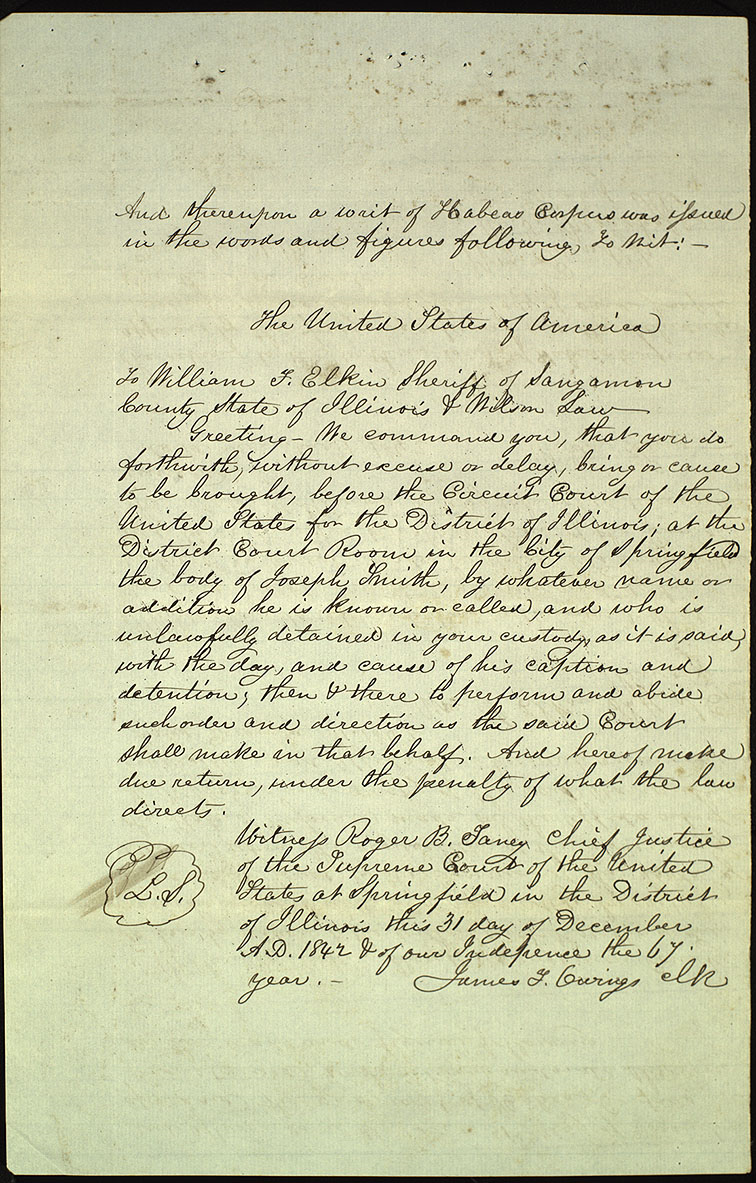 And thereupon a writ of Habeas Corpus was issued
in the words and figures following, To Wit: –
The United States of America
To William F. Elkin Sheriff of Sangamon
County State of Illinois & Wilson Law
Greeting – We command you, that you do
forthwith, without excuse or delay, bring or cause
to be brought, before the Circuit Court of the
United States for the District of Illinois; at the
District Court Room in the City of Springfield
the body of Joseph Smith, by whatever name or
addition he is known or called, and who is
unlawfully detained in your custody, as it is said,
with the day, and cause of his caption and
detention; then & there to perform and abide
such order and direction as the said Court
shall make in that behalf. And hereof make
due return, under the penalty of what the law
directs.
Witness Roger B. Taney Chief Justice
of the Supreme Court of the United
States at Springfield in the District
of Illinois this 31 day of December
A.D. 1842 & of our Indepence the 67.
year. –
James F. Owings clk
L. S.